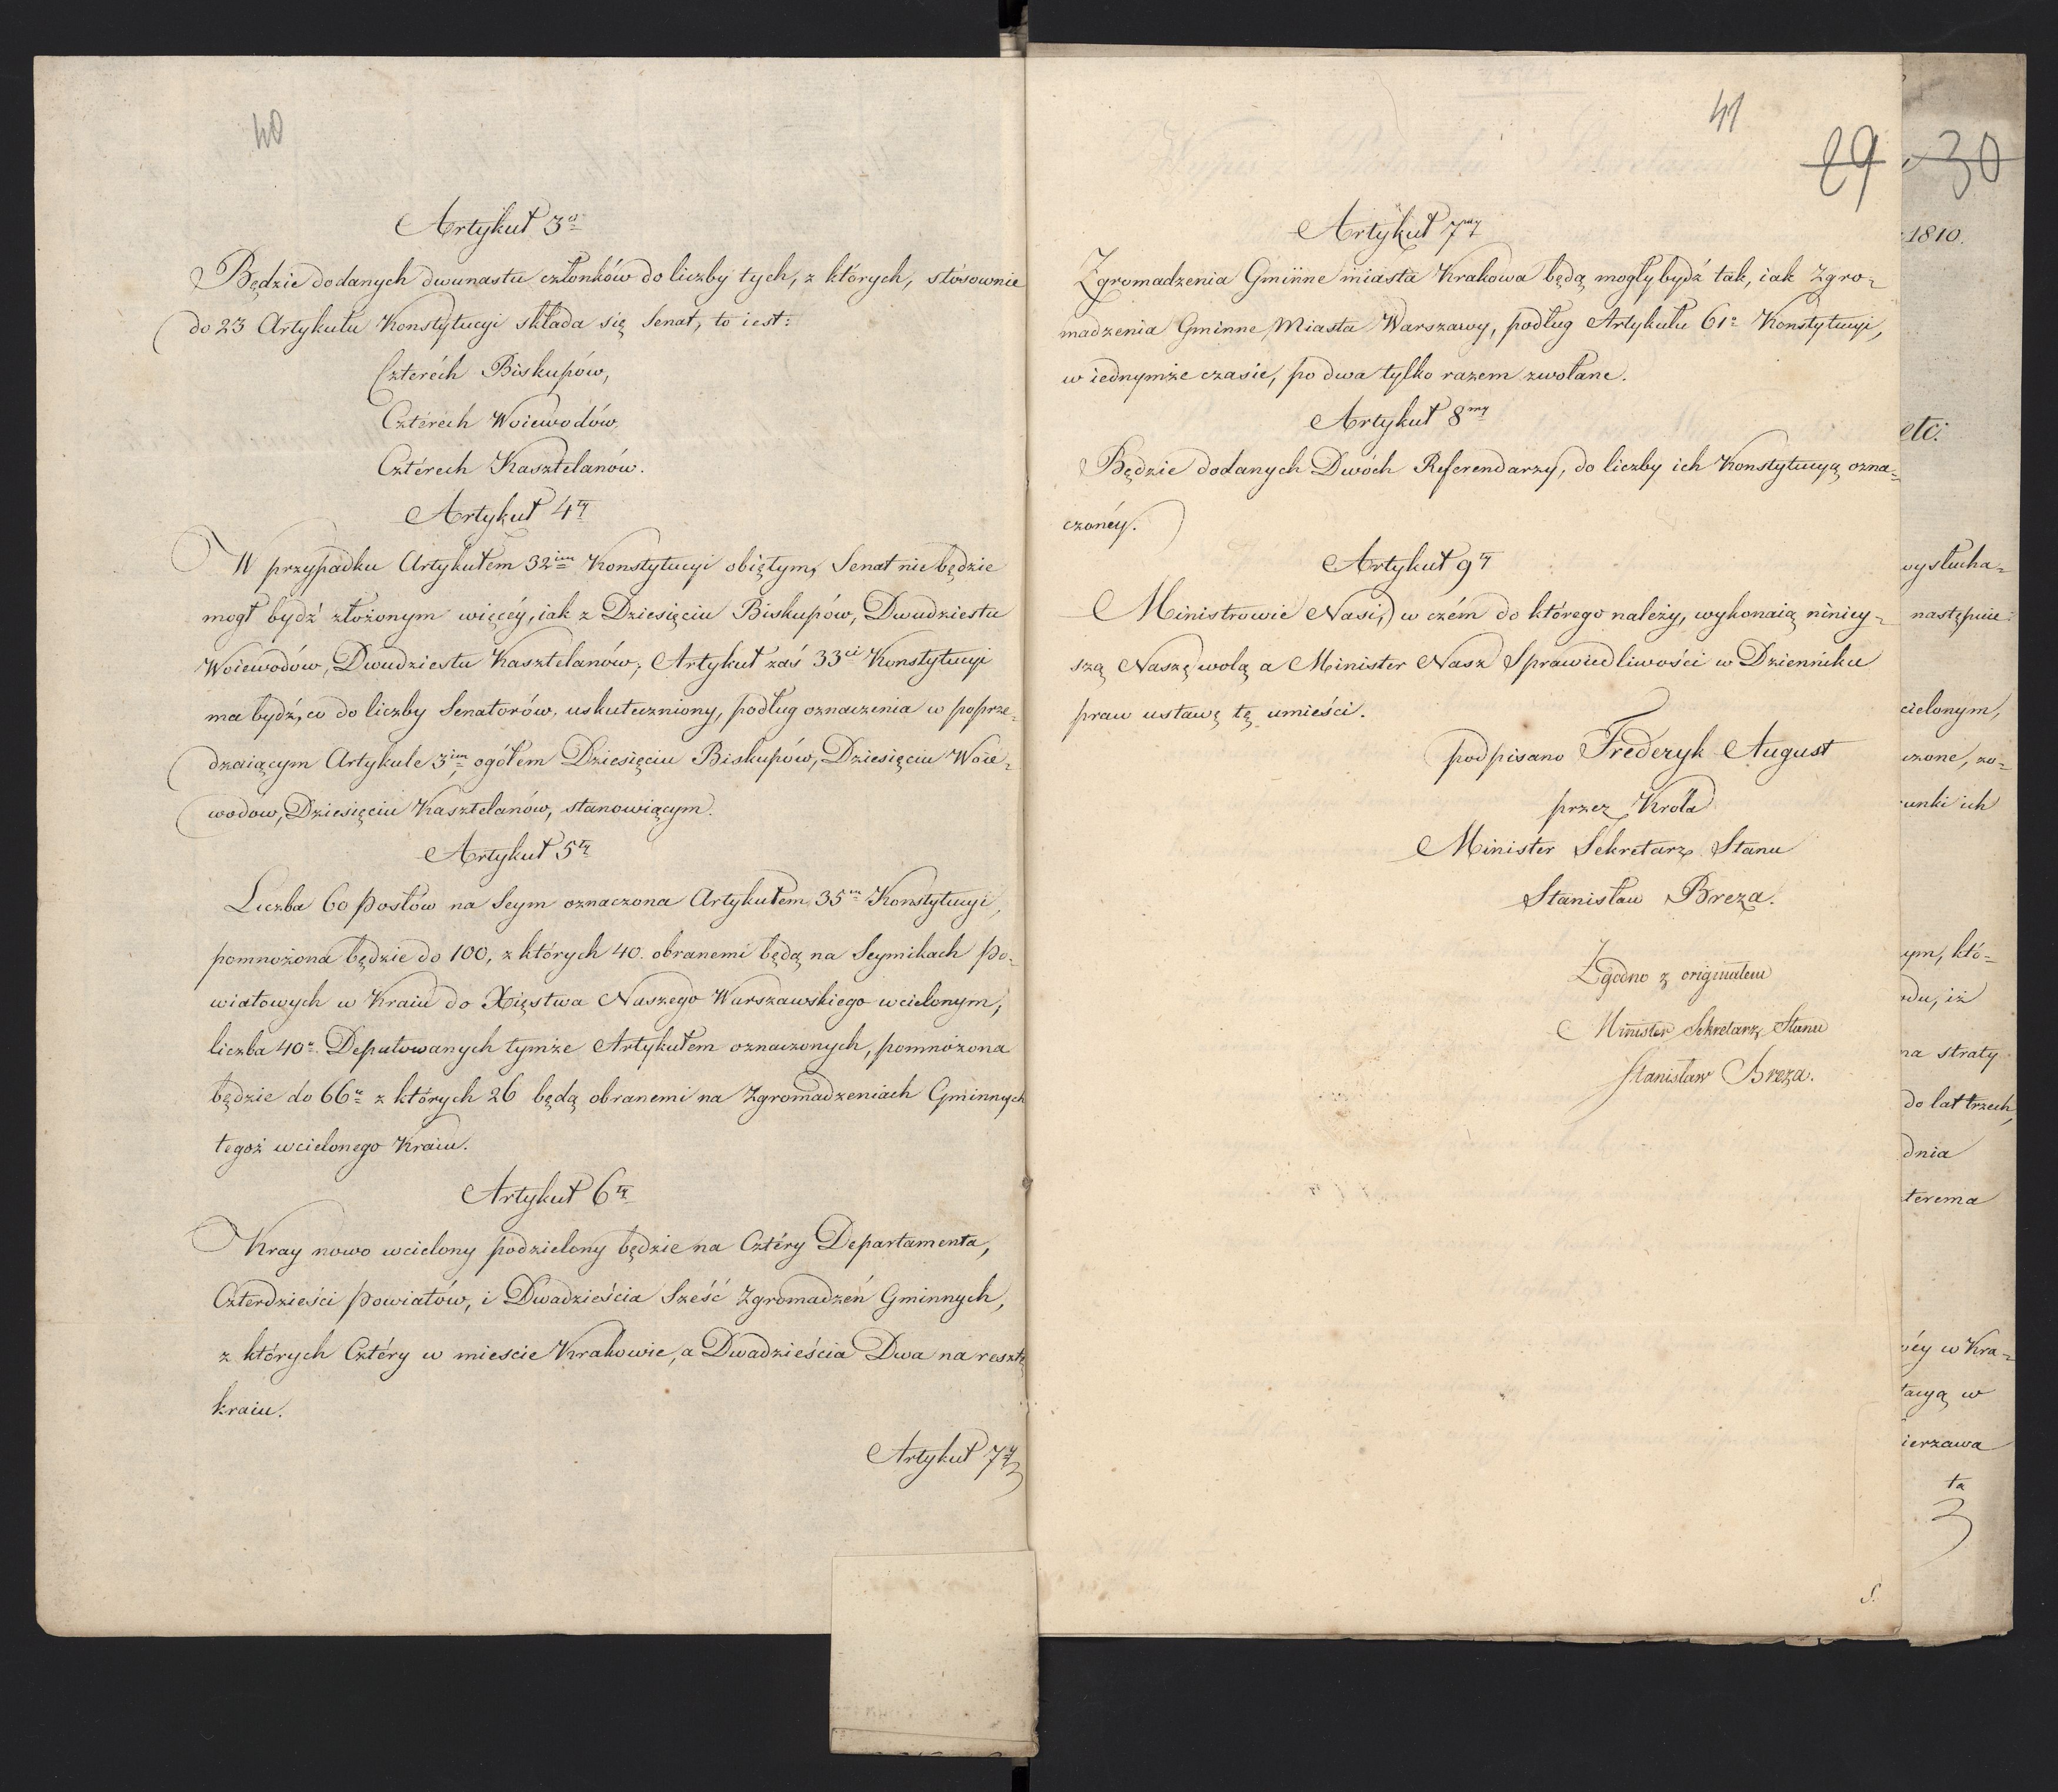 40
Artykuł 3ci
Będzie dodanych dwunastu członków do liczby tych, z których, stósownie
do 23 Artykułu Konstytucyi składa się Senat, to iest:
Czterech Biskupów,
Cztérech Woiewodów,
Cztérech Kasztelanów.
Artykuł 4ty
W przypadku Artykułem 32im Konstytucyi obiętym, Senat nie będzie
mogł bydź złożonym więcéy, iak z Dziesięciu Biskupów, Dwudziestu
Woiewodów, Dwudziestu Kasztelanów; Artykuł zaś 33ci Konstytucyi
ma bydź, co do liczby Senatorów, uskuteczniony, podług oznaczenia w poprze=
dzaiącym Artykule 3im, ogółem Dziesięciu Biskupów, Dziesięciu Woie=
wodow, Dziesięciu Kasztelanów, stanowiącym.
Artykuł 5ty
Liczba 60 Posłów na Seym oznaczona Artykułem 35m Konstytucyi,
pomnożona będzie do 100, z których 40. obranemi będą na Seymikach Po=
wiatowych w Kraiu do Xięstwa Naszego Warszawskiego wcielonym,
liczba 40u Deputowanych tymże Artykułem oznaczonych, pomnożona
będzie do 66u z których 26 będą obranemi na Zgromadzeniach Gminnych
tegoż wcielonego Kraiu.
Artykuł 6ty
Kray nowo wcielony podzielony będzie na Cztéry Departamenta,
Czterdzieści Powiatów, i Dwadzieścia Sześć Zgromadzeń Gminnych,
z których Cztéry w mieście Krakowie, a Dwadzieścia Dwa na resztę
kraiu.
Artykuł 7y
41
29
Artykuł 7my
Zgromadzenia Gminne miasta Krakowa będą mogły bydź tak, iak Zgro=
madzenia Gminne Miasta Warszawy, podług Artykułu 61o Konstytucyi,
w iednymże czasie, po dwa tylko razem zwołane.
Artykuł 8my
Będzie dodanych Dwóch Referendarzy, do liczby ich Konstytucyą ozna=
czonéy.
Artykuł 9ty
Ministrowie Nasi, w czém do którego należy, wykonaią niniey=
szą Naszę wolą a Minister Nasz Sprawiedliwości w Dzienniku
praw ustawę tę umieści.
podpisano Frederyk August
przez Króla
Minister Sekretarz Stanu
Stanisław Breza.
Zgodno z originałem
Minister Sekretarz Stanu
Stanisław Breza.
S.
30
1810.
etc:
wysłucha=
następuie:
cielonym,
czone, zo=
unki ich
ym, któ=
odu, iż
na straty
do lat trzech,
dnia
terema
wéy w Kra=
tacyą w
ierzawa
ta